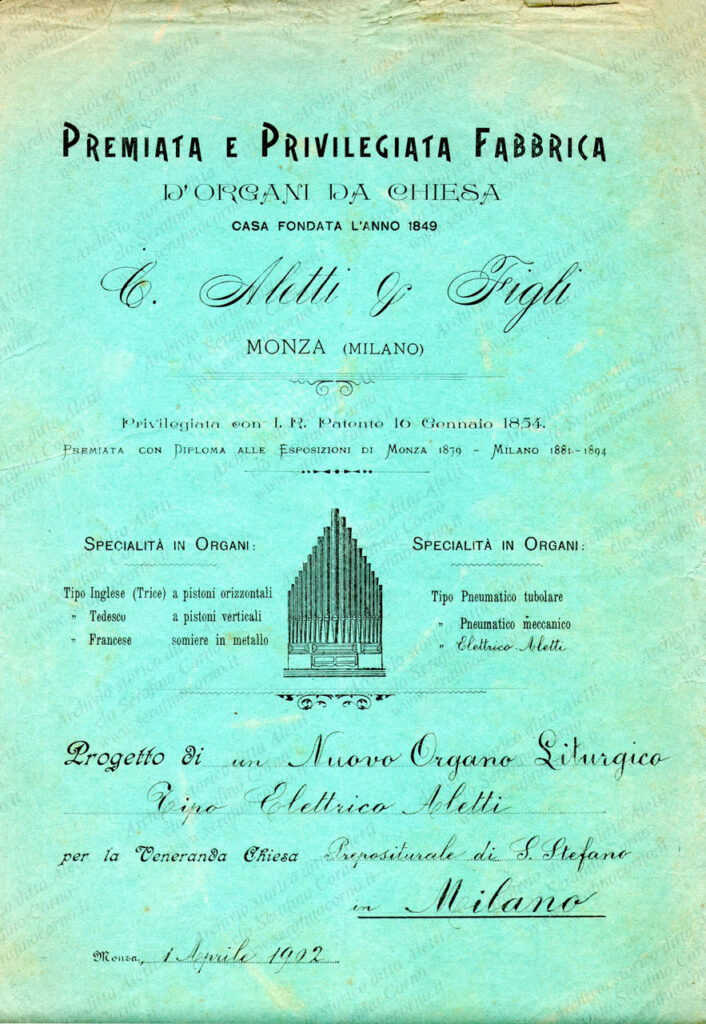 PREMIATA E PRIVILEGIATA FABBRICA
D'ORGANI DA CHIESA
CASA FONDATA L'ANNO 1849
C. Aletti & Figli
MONZA (MILANO)
Privilegiata con I. R. Patente 16 Gennaio 1854.
PREMIATA CON DIPLOMA ALLE ESPOSIZIONI DI MONZA 1879 - MILANO 1881-1894
SPECIALITÀ IN ORGANI:
Tipo Inglese (Trice) a pistoni orizzontali
" Tedesco a pistoni verticali
" Francese somiere in metallo
SPECIALITÀ IN ORGANI:
Tipo Pneumatico tubolare
" Pneumatico meccanico
" Elettrico Aletti
Progetto di un Nuovo Organo Liturgico
Tipo Elettrico Aletti
per la Veneranda Chiesa Prepositurale di S. Stefano
in Milano
Monza, 1 Aprile 1902
Archivio storico ditta Aletti
c/o Serafino Corno
www.serafinocorno.it